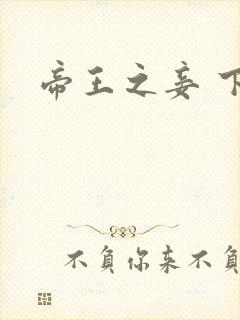 帝王之妾 下
不負你来不負